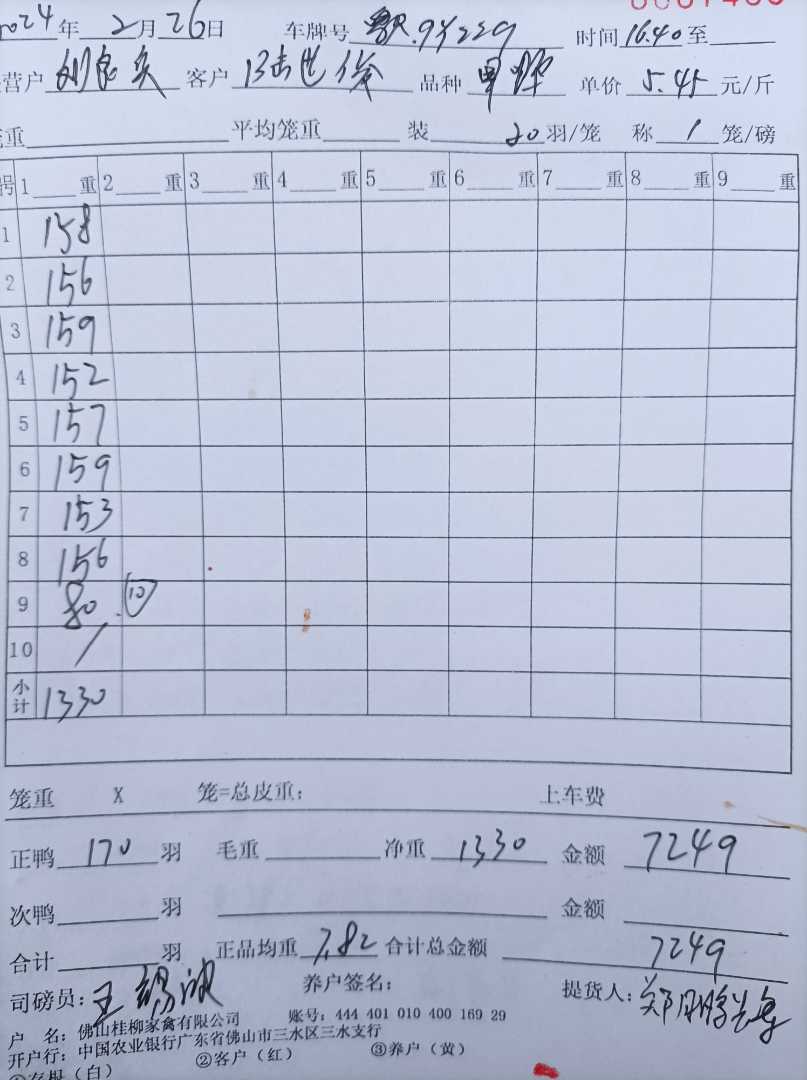 2024年 2月26日 车牌号 粤R.9Y229 时间16.40至
营户 刘家英 客户 品种 单价 5.45 元/斤
重 平均笼重 装 20羽/笼 称 1 笼/磅
号 1 重 2 重 3 重 4 重 5 重 6 重 7 重 8 重 9 重
1 158
2 156
3 159
4 152
5 157
6 159
7 153
8 156
9 80 ⑩
10 /
小计 1330
笼重 X 笼=总皮重: 上车费
正鸭 170 羽 毛重 净重 1330 金额 7249
次鸭 羽 金额
合计 羽 正品均重 7.82 合计总金额 7249
司磅员: 养户签名: 提货人:
户 名: 佛山桂柳家禽有限公司 账号: 444 401 010 400 169 29
开户行: 中国农业银行广东省佛山市三水区三水支行
①存根(白) ②客户(红) ③养户(黄)